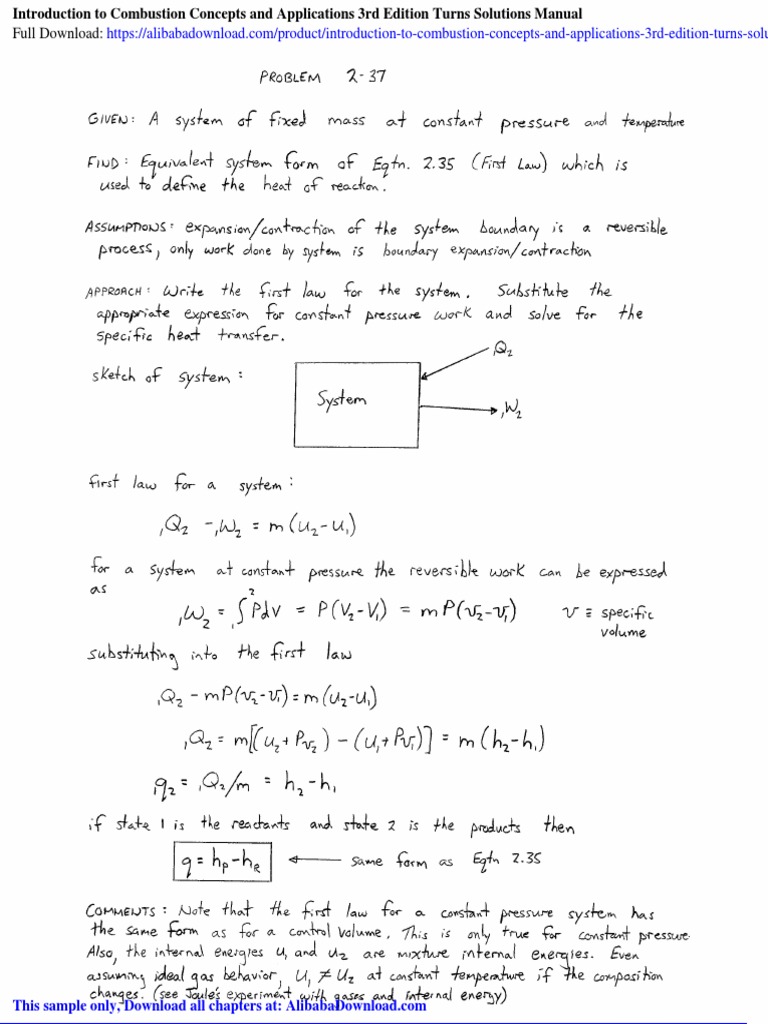 Introduction to Combustion Concepts and Applications 3rd Edition Turns Solutions Manual
Full Download: https://alibabadownload.com/product/introduction-to-combustion-concepts-and-applications-3rd-edition-turns-solu
PROBLEM 2-37
GIVEN: A system of fixed mass at constant pressure and temperature
FIND: Equivalent system form of Eqtn. 2.35 (First Law) which is
used to define the heat of reaction.
ASSUMPTIONS: expansion/contraction of the system boundary is a reversible
process, only work done by system is boundary expansion/contraction
APPROACH: Write the first law for the system. Substitute the
appropriate expression for constant pressure work and solve for the
specific heat transfer.
₁Q₂
sketch of system:
System
₁W₂
first law for a system:
₁Q₂ - ₁W₂ = m(u₂-u₁)
for a system at constant pressure the reversible work can be expressed
as
₁W₂ = ∫₁² Pdv = P(V₂-V₁) = mP(v₂-v₁) v ≡ specific
volume
substituting into the first law
₁Q₂ - mP(v₂-v₁) = m(u₂-u₁)
₁Q₂ = m[(u₂+Pv₂) - (u₁+Pv₁)] = m(h₂-h₁)
₁q₂ = ₁Q₂/m = h₂-h₁
if state 1 is the reactants and state 2 is the products then
q = hₚ-h_R ← same form as Eqtn 2.35
COMMENTS: Note that the first law for a constant pressure system has
the same form as for a control volume. This is only true for constant pressure.
Also, the internal energies u₁ and u₂ are mixture internal energies. Even
assuming ideal gas behavior, u₁ ≠ u₂ at constant temperature if the composition
changes. (see Joule's experiment with gases and internal energy)
This sample only, Download all chapters at: AlibabaDownload.com